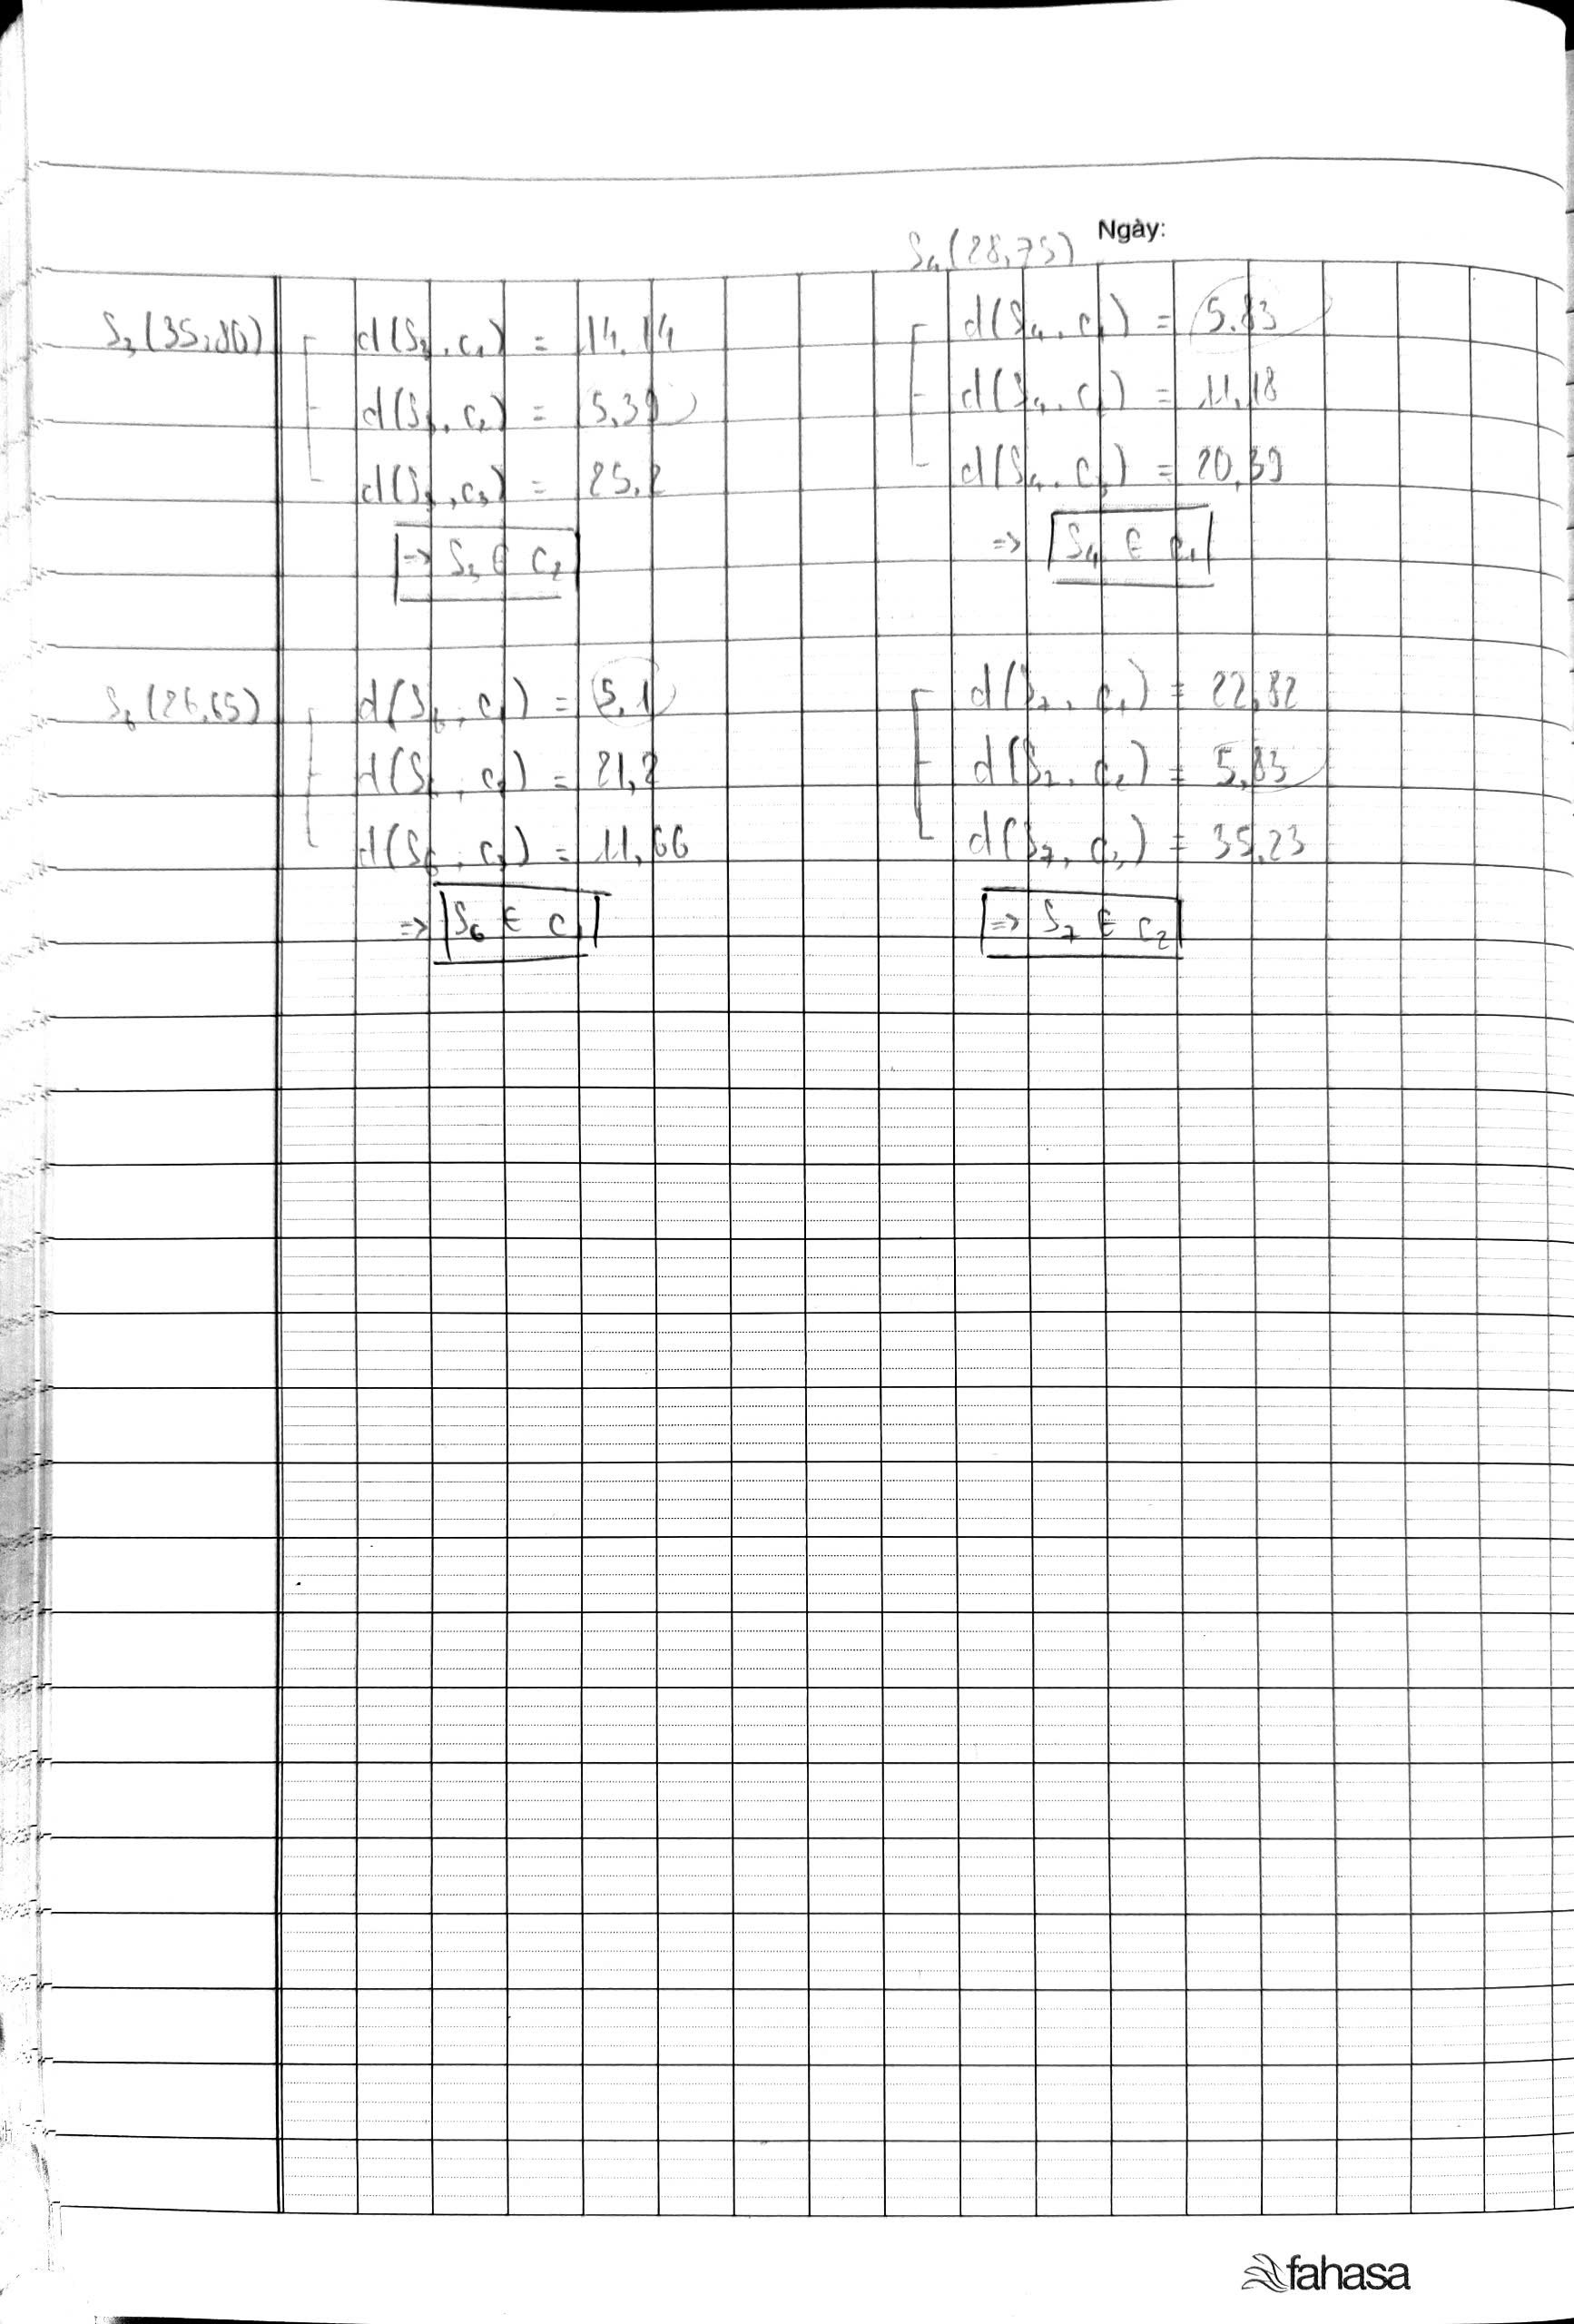 Ngày:
S₄(28,75)
S₃(35,80)
d(S₃, c₁) = 14,14
d(S₃, c₂) = 5,39
d(S₃, c₃) = 25,2
=> S₃ ∈ c₂
d(S₄, c₁) = 5,83
d(S₄, c₂) = 11,18
d(S₄, c₃) = 20,39
=> S₄ ∈ c₁
S₆(26,65)
d(S₆, c₁) = 5,1
d(S₆, c₂) = 21,2
d(S₆, c₃) = 11,66
=> S₆ ∈ c₁
d(S₇, c₁) = 22,82
d(S₇, c₂) = 5,83
d(S₇, c₃) = 35,23
=> S₇ ∈ c₂
fahasa